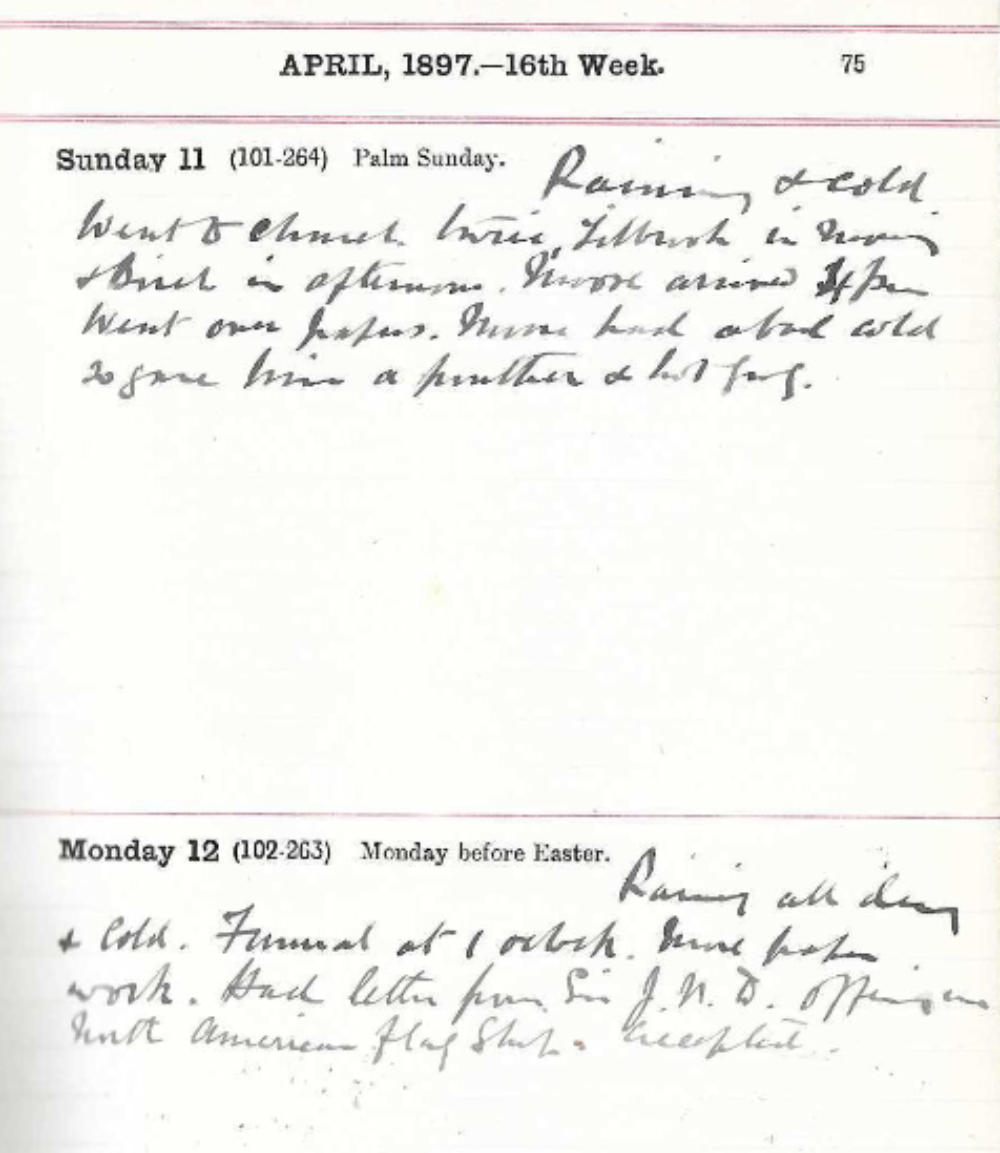 APRIL, 1897.—16th Week. 75
Sunday 11 (101-264) Palm Sunday. Raining & cold
Went to church twice, in Morning
& Birch in afternoon. Moore arrived 4 pm
Went over papers. Moore had a bad cold
so gave him a & hot grog.
Monday 12 (102-263) Monday before Easter. Raining all day
& Cold. Funeral at 1 oclock. More paper
work. Had letter from Sir J. N. D. offering me
North American Flag Ship. Accepted.